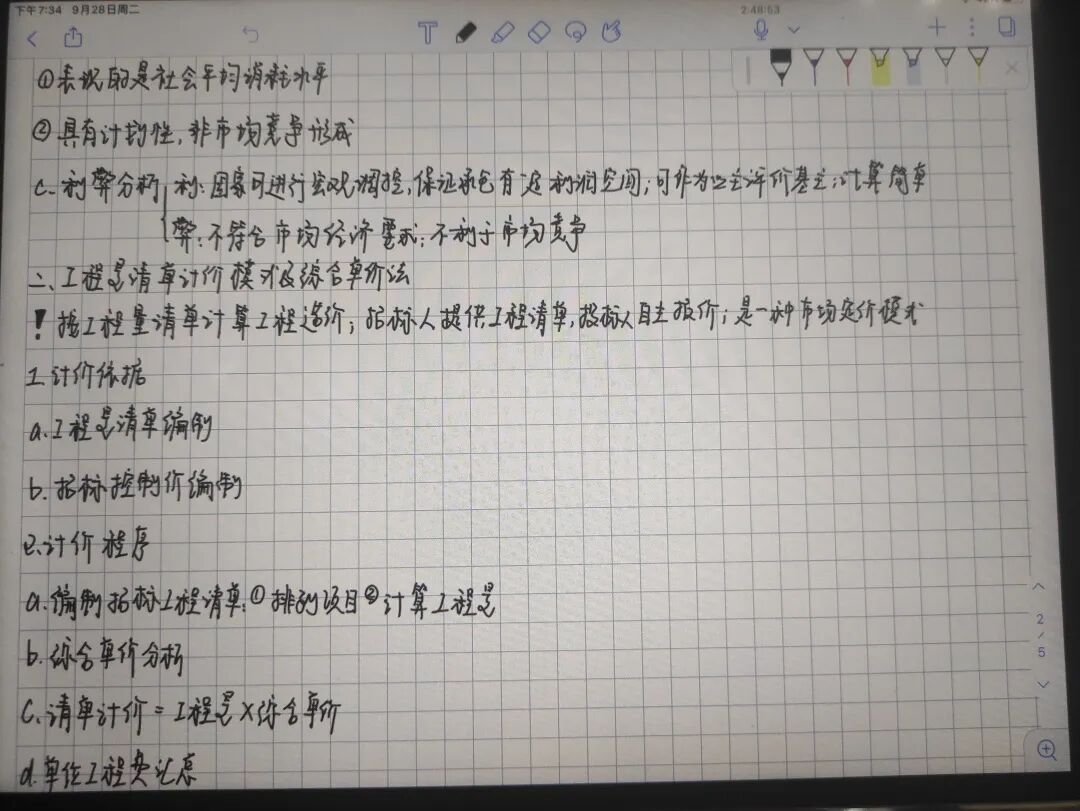 下午7:34 9月28日周二
2:48:53
①表现的是社会平均消耗水平
②具有计划性,非市场竞争形成
c.利弊分析 利:国家可进行宏观调控,保证承包有一定利润空间;可作为业主评价基准;计算简单
弊:不符合市场经济要求;不利于市场竞争
二、工程量清单计价模式及综合单价法
!按工程量清单计算工程造价;招标人提供工程清单,投标人自主报价;是一种市场定价模式
1.计价依据
a.工程量清单编制
b.招标控制价编制
2.计价程序
a.编制招标工程清单:①排列项目②计算工程量
b.综合单价分析
C.清单计价=工程量×综合单价
d.单位工程费汇总
2/5